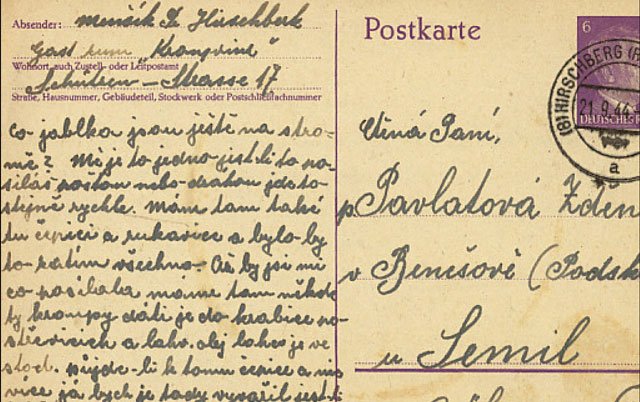 Absender: Menšík Fr. Hirschberk
Gast zum "Kronprinz"
Wohnort, auch Zustell- oder Leitpostamt
Schützen-Strasse 17
Straße, Hausnummer, Gebäudeteil, Stockwerk oder Postschließfachnummer
co jablka jsou ještě na stro-
mě? Mě je to jedno jestli to po-
síláš poštou nebo drahou jde to
stejně rychle. Mám tam také
tu čepici a rukavice a bylo by
to zatím všechno. Až by jsi mi
co posílala máme tam někde
ty krompy dáti je do krabice po
a lahv. olej lahev je ve
přijde-li k tomu čepice a
více já bych je tady vyvařil jest-li
Postkarte
6
(8) HIRSCHBERG (R
21.9.44
DEUTSCHES R
a
Ctěná Paní,
p Pavlatová Zden
v Benešově (Podsk
u Semil